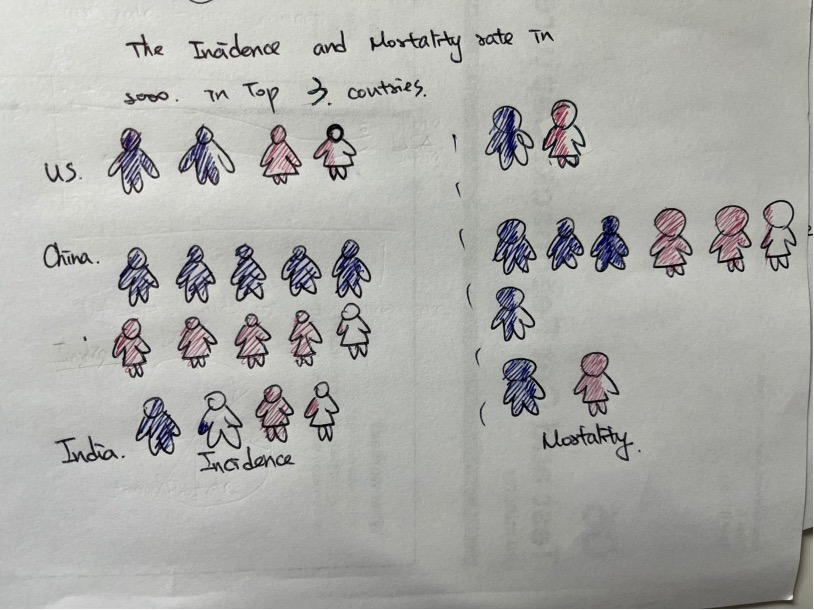 The Incidence and Mortality rate in
5000. in Top 3. coutries.
US.
China.
India.
Incidence
Mortality.